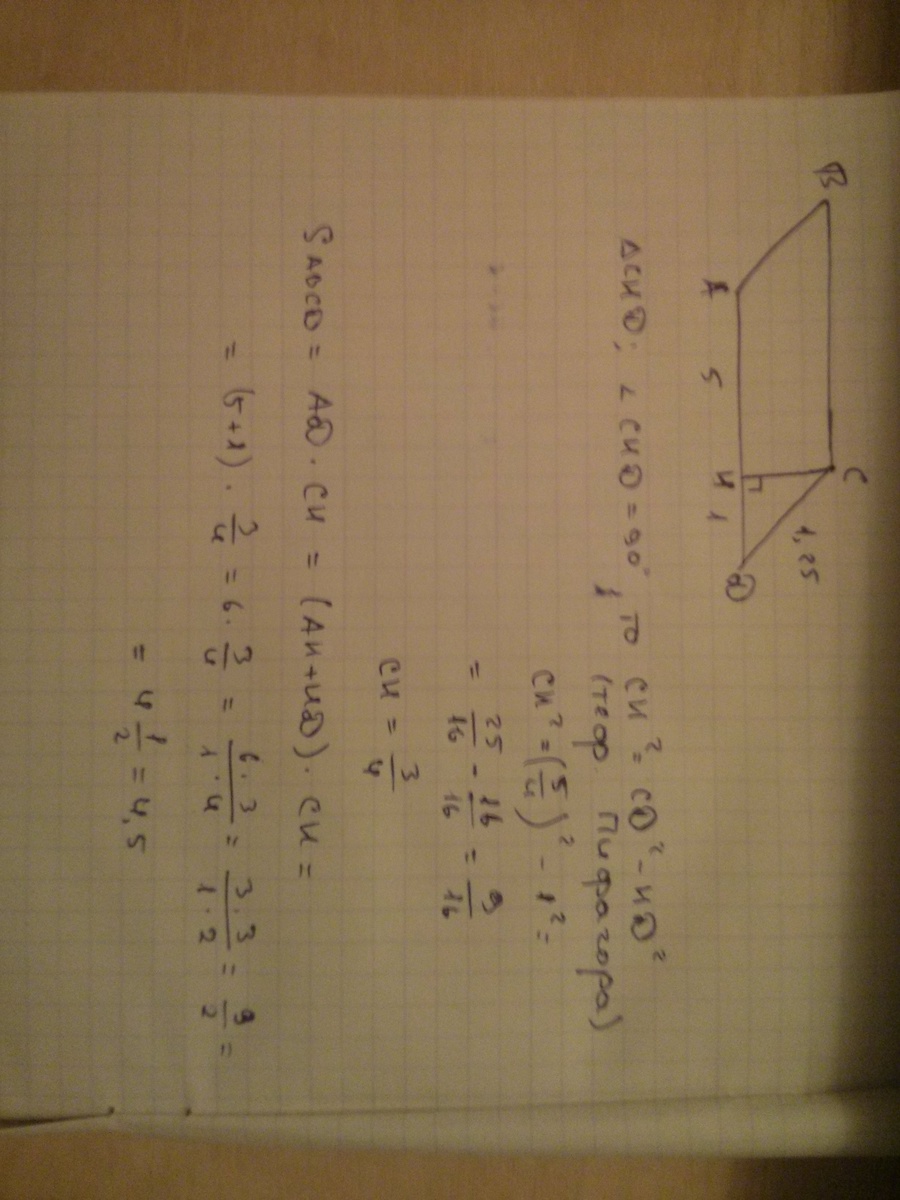 B C
1,25
A 5 H 1 D
ΔCHD; ∠CHD = 90°, то CH² = CD² - HD²
(теор. Пифагора)
CH² = (5/4)² - 1² =
= 25/16 - 16/16 = 9/16
CH = 3/4
S ABCD = AD · CH = (AH + HD) · CH =
= (5+1) · 3/4 = 6 · 3/4 = 6·3/1·4 = 3·3/1·2 = 9/2 =
= 4 1/2 = 4,5